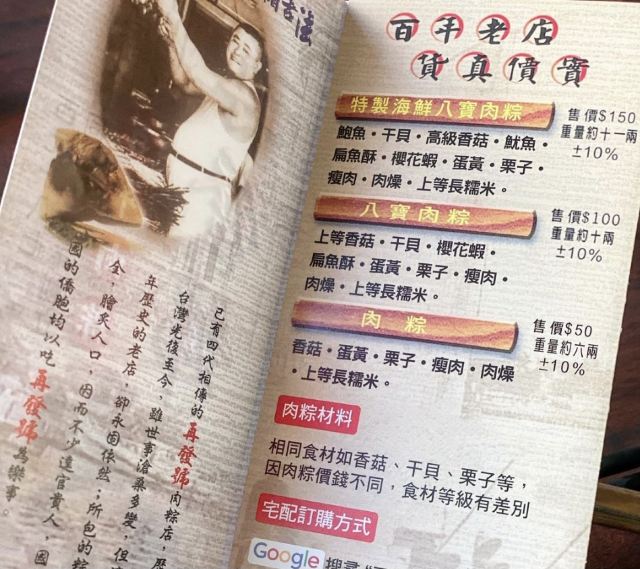 百年老店
貨真價實
特製海鮮八寶肉粽
售價$150
重量約十一兩
±10%
鮑魚・干貝・高級香菇・魷魚・
扁魚酥・櫻花蝦・蛋黃・栗子・
瘦肉・肉燥・上等長糯米。
八寶肉粽
售價$100
重量約十兩
±10%
上等香菇・干貝・櫻花蝦・
扁魚酥・蛋黃・栗子・瘦肉・
肉燥・上等長糯米。
肉粽
售價$50
重量約六兩
±10%
香菇・蛋黃・栗子・瘦肉・肉燥
・上等長糯米。
肉粽材料
相同食材如香菇、干貝、栗子等，
因肉粽價錢不同，食材等級有差別
宅配訂購方式
Google 搜尋“
已有四代相傳的再發號肉粽店，歷
台灣光復至今，雖世事滄桑多變，但
年歷史的老店，卻永固依然；所包的粽
全，膾炙人口，因而不少達官貴人，國
國的僑胞均以吃再發號為樂事